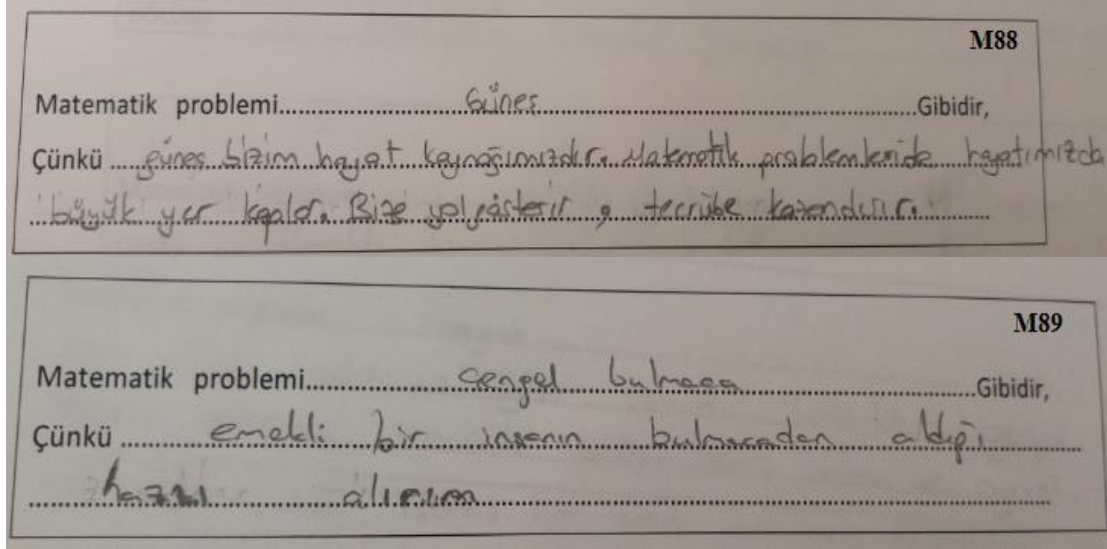 M88
Matematik problemi.............Güneş.............Gibidir,
Çünkü ....güneş bizim hayat kaynağımızdır. Matematik problemleride hayatımızda
büyük yer kaplar. Bize yol gösterir, tecrübe kazandırır.
M89
Matematik problemi.............çengel bulmaca.............Gibidir,
Çünkü .............emekli bir insanın bulmacadan aldığı
hazzı alırım